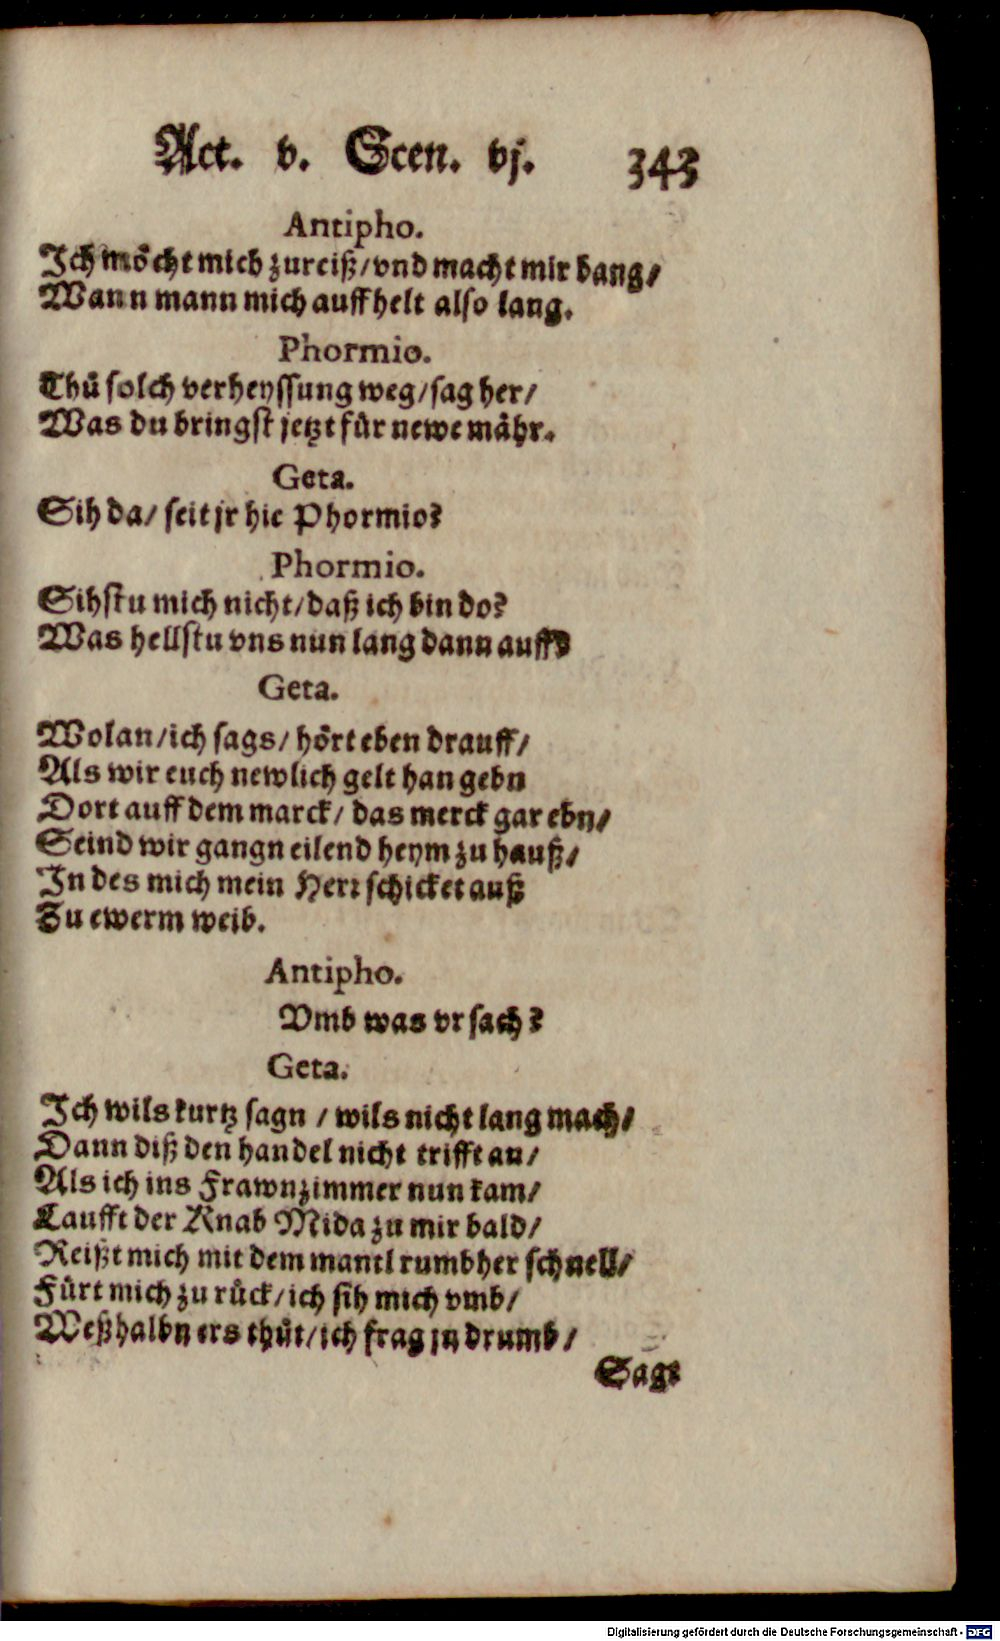 Act. v. Scen. vj. 343
Antipho.
Ich möcht mich zureiß/vnd macht mir bang/
Wann mann mich auffhelt also lang.
Phormio.
Thů solch verheyssung weg/sag her/
Was du bringst jetzt für newe mähr.
Geta.
Sih da/ seit jr hie Phormio?
Phormio.
Sihstu mich nicht/daß ich bin do?
Was hellstu vns nun lang dann auff?
Geta.
Wolan/ich sags/ hört eben drauff/
Als wir euch newlich gelt han gebn
Dort auff dem marck/ das merck gar ebn/
Seind wir gangn eilend heym zu hauß/
In des mich mein Herr schicket auß
Zu ewerm weib.
Antipho.
Vmb was vrsach?
Geta.
Ich wils kurtz sagn / wils nicht lang mach/
Dann diß den handel nicht trifft an/
Als ich ins Frawnzimmer nun kam/
Laufft der Knab Mida zu mir bald/
Reißt mich mit dem mantl rumbher schnell/
Fürt mich zu rück/ich sih mich vmb/
Weßhalbn ers thůt/ich frag jn drumb/
Sagt
Digitalisierung gefördert durch die Deutsche Forschungsgemeinschaft - DFG